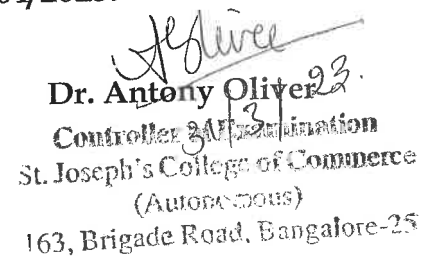 Dr. Antony Oliver
31/3/23.
Controller of Examination
St. Joseph's College of Commerce
(Autonomous)
163, Brigade Road, Bangalore-25